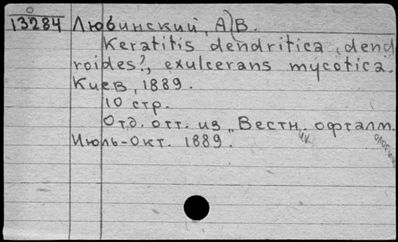 13284 Любинский, А. В.
Keratitis dendritica, dend
roides?, exulcerans mycotica.
Киев, 1889.
10 стр.
Отд. отт. из „Вестн. офталм.
Июль-Окт. 1889.